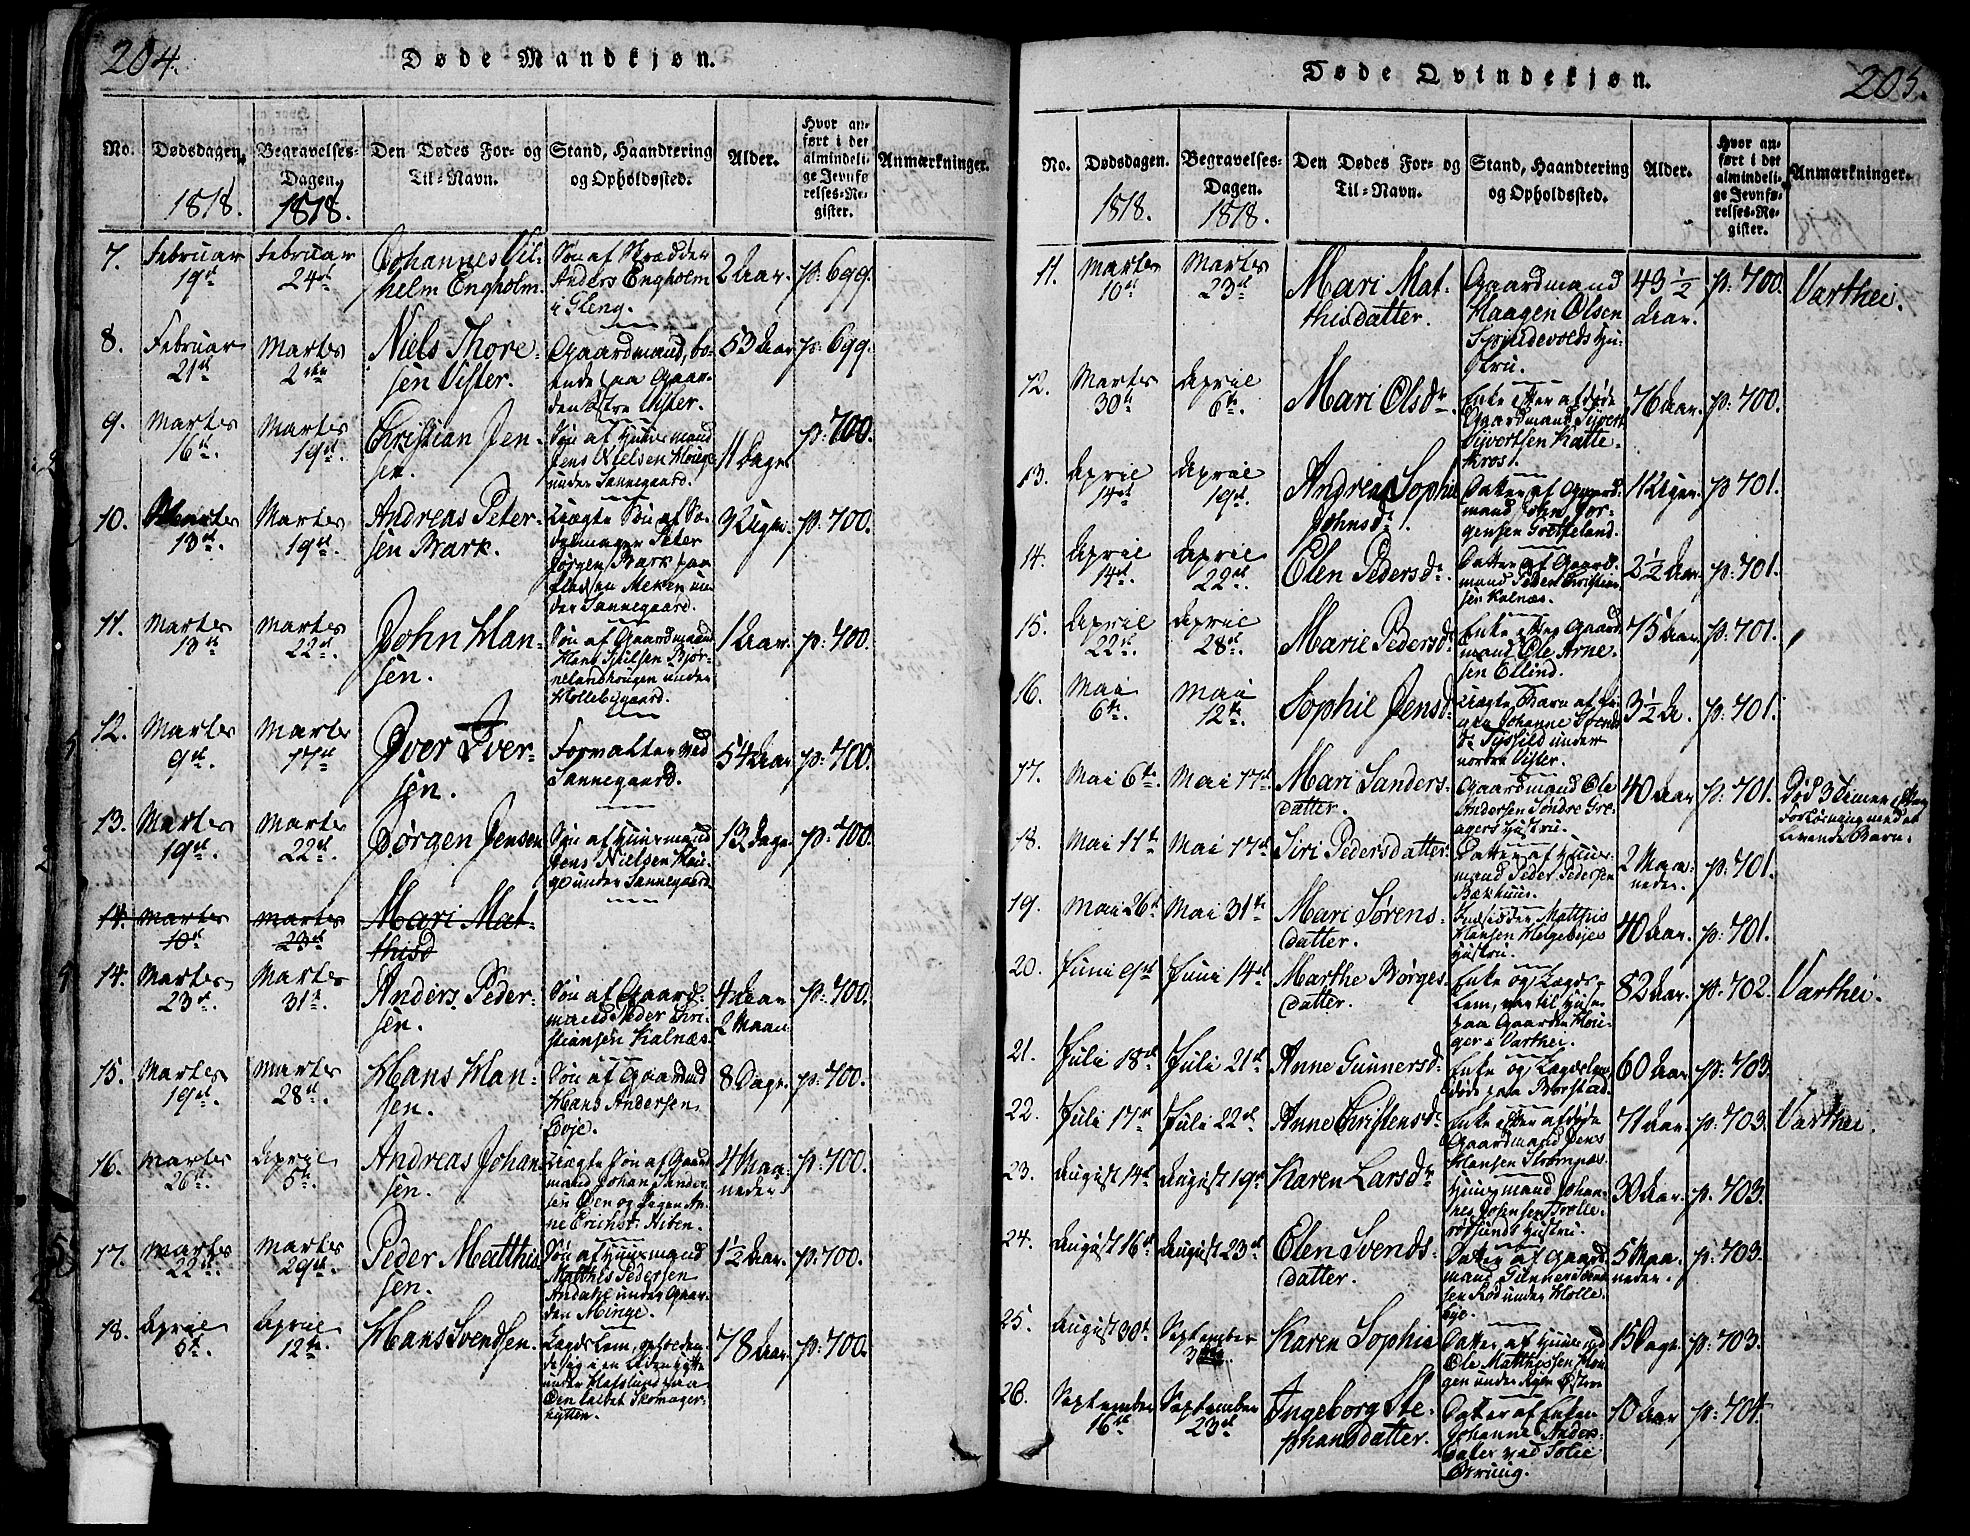 204.
Døde Mandkjøn.
No.
Dødsdagen.
1818.
Begravelses-
Dagen.
1818.
Den Dødes For- og
Til-Navn.
Stand, Haandtering
og Opholdssted.
Alder.
Hvor an-
ført i det
almindeli-
ge Jevnfø-
relses-Re-
gister.
Anmærkninger.
7.
Februar
19de
Februar
24de
Johannes Vil-
helm Engholm.
Søn af Skrædder
Anders Engholm
i Gleng.
2 Aar.
p: 699.
8.
Februar
21de
Martes
2den
Niels Thore-
sen Vister.
Gaardmand, bo-
ende paa Gaar-
den Østre Vister.
53 Aar
p: 699.
9.
Martes
16de
Martes
19de
Christian Jen-
sen.
Søn af Huusmand
Jens Nielsen
under Sannegaard.
11 Dage
p: 700.
10.
Martes
13de
Martes
19de
Andreas Peter-
sen Bark.
Uægte Søn af
Peter
Jørgen Bark paa
un-
der Sannegaard.
3 Uger.
p: 700.
11.
Martes
13de
Martes
22de
John Han-
sen.
Søn af Gaardmand
Hans
under
Hollebygaard.
1 Aar.
p: 700.
12.
Martes
9de
Martes
17de
Iver Iver-
sen.
Forvalter ved
Sannegaard.
54 Aar
p: 700.
13.
Martes
19de
Martes
22de
Børgen Jensen
Søn af Huusmand
Jens Nielsen Hau-
ge under Sannegaard
13 Dage
p: 700.
14.
Martes
10de
Martes
23de
Mari Mat-
thisd
14.
Martes
23de
Martes
31te
Anders Peder-
sen.
Søn af Gaard-
mand Peder Chri-
stiansen Kalnæs.
4 Aar
2 Maan
p: 700.
15.
Martes
19de
Martes
28de
Hans Han-
sen.
Søn af Gaardmd
Hans Andersen
8 Dage.
p: 700.
16.
Martes
26de
April
5te
Andreas Johan-
sen.
Uægte Søn af Gaard
mand Johan Sander-
sen Øen og Pigen An-
ne Erichsd:
4 Maa-
neder
p: 700.
17.
Martes
22de
Martes
29de
Peder Matthis
sen.
Søn af Huusmand
Matthis Pedersen
under Gaar-
den Minge.
1½ Aar.
p: 700.
18.
April
5te
April
12te
Hans Svendsen.
Lægdslem, opholden-
de sig i en
under Hafslund paa
Øen kaldet Skomager-
hytten.
78 Aar.
p: 700.
205.
Døde Qvindekjøn.
No.
Dødsdagen.
1818.
Begravelses-
Dagen.
1818.
Den Dødes For- og
Til-Navn.
Stand, Haandtering
og Opholdssted.
Alder.
Hvor an-
ført i det
almindeli-
ge Jevnfø-
relses-Re-
gister.
Anmærkninger.
11.
Martes
10de
Martes
23de
Mari Mat-
thisdatter.
Gaardmand
Haagen Olsen
Spindevolds Hu-
stru.
43½
Aar.
p: 700.
Varthei.
12.
Martes
30te
April
6te
Mari Olsdr.
Enke efter afdøde
Gaardmand Sivert
Sivertsen Katte-
13.
April
14de
April
19de
76 Aar.
p: 700.
Andrea Sophie
Johnsdr.
Datter af Gaard-
mand John Jør-
gensen Grette­land.
11 Uger.
p: 701.
14.
April
14de
April
22de
Elen Pedersdr.
Datter af Gaard-
mand Peder Christian-
sen Kalnæs.
2½ Aar.
p: 701.
15.
April
22de
April
28de
Marie Pedersdr
Enke efter Gaard
mand Ole Arne-
sen
75 Aar
p: 701.
16.
Mai
6te
Mai
12te
Sophie Jensdr
Uægte Barn af En-
ken Johanne Svends
dr. under
nordre Vister.
3½ A.
p: 701.
17.
Mai 6te
Mai 17de
Mari Sanders-
datter.
Gaardmand Ole
Andersen Søndre Gre-
agers Hustru.
40 Aar
p: 701.
Død 3 Timer efter
Forløsning med et
levende Barn.
18.
Mai 11te
Mai 17de
Siri Pedersdatter
Datter af Huus-
mand Peder Pedersen
Bækhuus.
2 Maa-
neder.
p: 701.
19.
Mai 26de
Mai 31te
Mari Sørens-
datter.
Indsidder Matthis
Hansen Helgebyes
Hustru.
40 Aar.
p: 701.
20.
Juni 9de
Juni 14de
Marthe Børges
datter.
Enke og Lægds-
lem, var til Huse
paa Gaarden Hau-
ger i Varthei.
82 Aar.
p: 702.
Varthei.
21.
Juli 18de
Juli 21de
Anne Gunnersdr
Enke og Lægdslem
døde paa Borstad.
60 Aar
p: 703.
22.
Juli 17de
Juli 22de
Anne Christensdr
Enke efter afdøde
Gaardmand Jens
Hansen Strømnæs.
71 Aar.
p: 703.
Varthei.
23.
August 14de
August 19de
Karen Larsdr
Huusmand Johan-
nes Johnsen Trolle-
Hustru.
30 Aar.
p: 703.
24.
August 16de
August 23de
Elen Svends-
datter.
Datter af Gaard
mand Gunner Svend
sen Rød under Holle-
bye.
5 Maa-
neder.
p: 703.
25.
August 30te
September
3
Karen Sophie
Datter af Huusmd
Ole Matthissen Hau-
gen under
15 Dage
p: 703.
26.
September
16de
September
23de
Ingeborg Ste-
phansdatter.
Datter af Enken
Johanne Anders-
datter ved Solie
Brug.
10 Aar
p: 704.